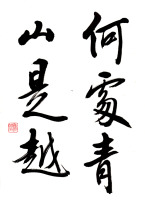 何處青
山是越